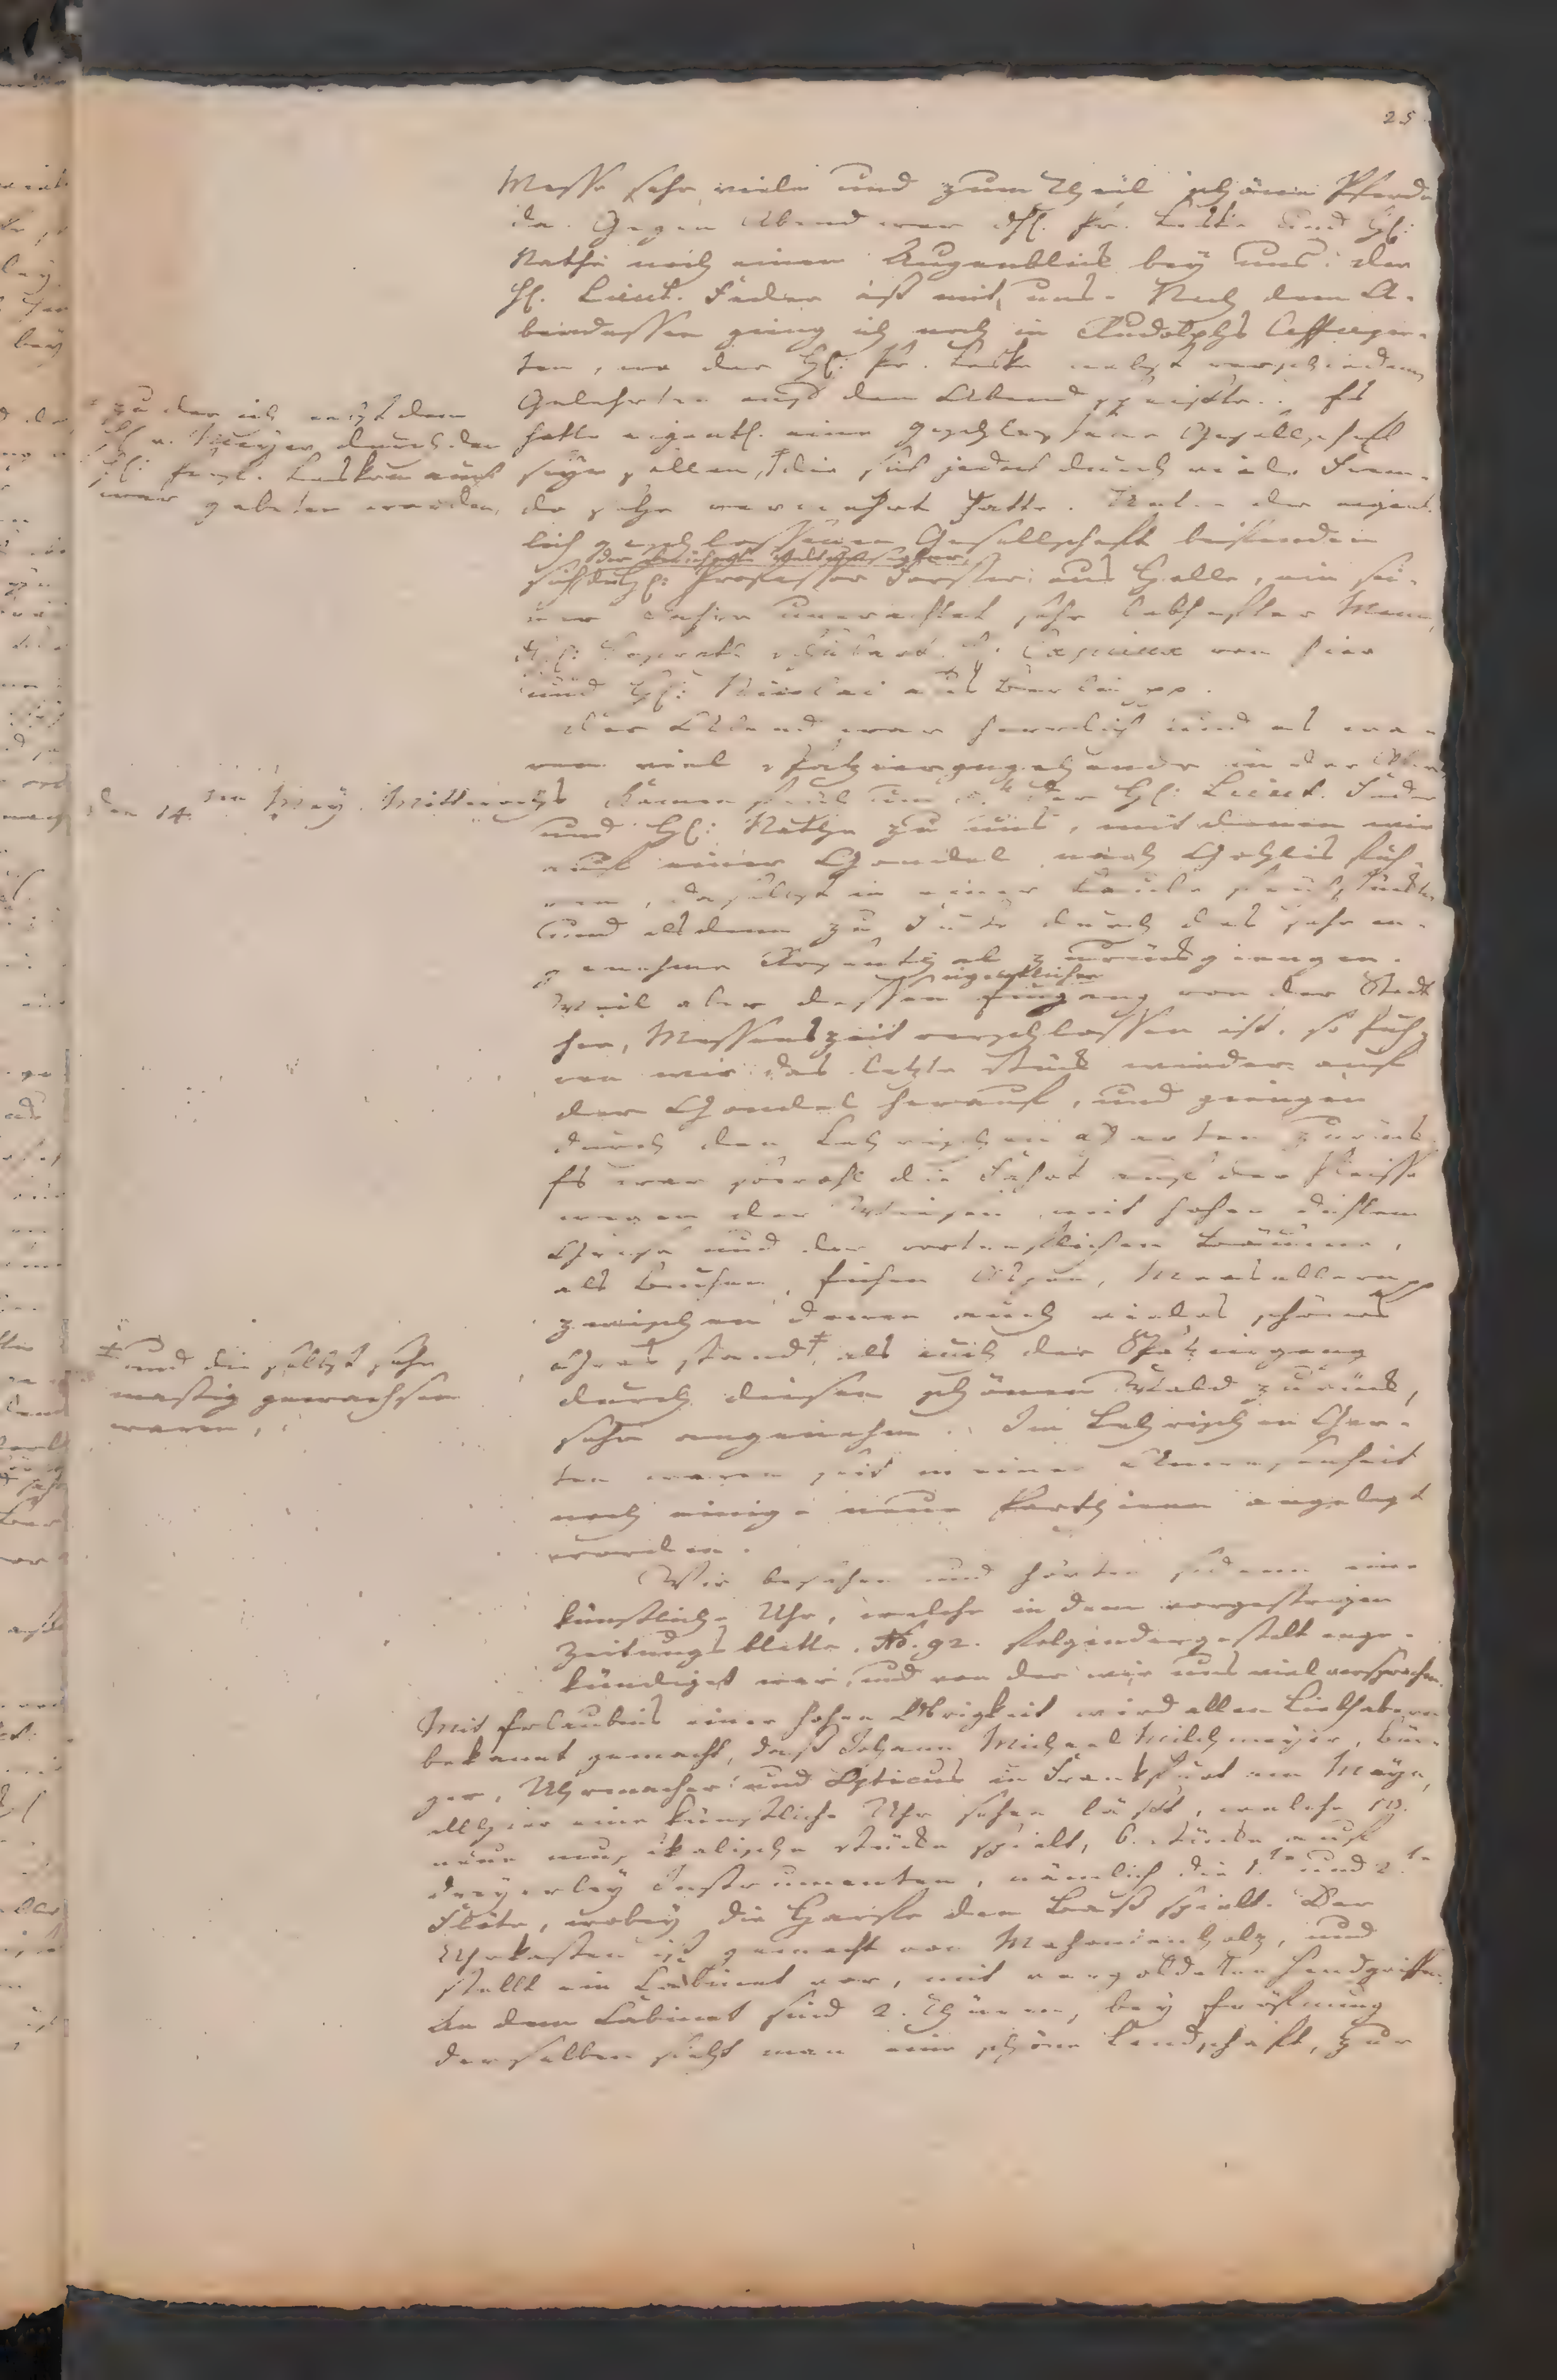 25
Messe sehr viele und zum Theil schöne Pferde
da. Gegen Abend war Hr. Pr. Leske und Hr:
Nathe noch einen Augenblick bey uns: der
Hr. Lieut. Fuder aß mit uns. Nach dem A-
bendessen gieng ich noch in Rudolphs Caffeegar-
ten, wo der Hr: Pr. Leske nebst verschiedenen
Gelehrten auf den Abend speißte. Es
hatte eigentl. eine geschlossene Gesellschaft
seyn sollen, † die sich jedoch durch viele Frem-
de sehr vermehrt hatte. Unter der eigent-
lich geschlossenen Gesellschaft befanden
der berühmte Weltumsegler
sich Hr: Professor Forster aus Halle, ein sei-
ner Jahre unerachtet sehr lebhafter Mann,
von hier
und Hr: Nicolai aus Berlin pp.
zu der ich nebst dem
H. v. Meyer durch den
Hr: Prof. Leske auch
war gebeten worden,
Der Abend war herrlich und es wa-
ren viel Spatzierengehende in der Allee
den 14.ten May. Mittwochs kamen früh um der Hr: Lieut. Fuder
und Hr: Nathe zu uns, mit denen wir
auf einer Gondel nach Gohlis fuh-
ren, daselbst in einer Laube frühstückten
und alsdenn zu Fuße durch das sehr an-
genehme Rosenthal zurückgiengen.
eigentlicher
Weil aber dessen Eingang von der Stadt
her, Messenszeit verschlossen ist, so fuh-
ren wir das letzte Stück wieder auf
der Gondel herauf, und giengen
durch den Lehrischen Garten zurück.
Es war sowohl die Fahrt auf der Pleisse
wegen der Wiesen mit hohen dichtem
Grase und der vortreflichen Bäume,
als Buchen, Eichen Espen, Maasellern pp
zwischen denen auch vieles schönes
Gras stand †, als auch der Spatziergang
durch diesen schönen Wald zurück,
sehr angenehm. Im Lehrischen Gar-
ten waren seit meiner Anwesenheit
noch einige neue Parthieen angelegt
worden.
‡ und die selbst sehr
mastig gewachsen
waren,
Wir besahen und hörten sodenn eine
künstliche Uhr, welche in dem vorgestrigen
Zeitungsblatte No. 92. folgendergestalt ange-
kündiget war, und von der wir uns viel versprachen.
Mit Erlaubnis einer hohen Obrigkeit wird allen Liebhabern
bekannt gemacht, daß Johann Michael Milchmeyer, Bür-
ger, Uhrmacher und Opticus in Frankfurt am Mayn,
allhier eine künstliche Uhr sehen läßt, welche
neue musikalische Stücke spielt, 6. Stücke auf
dreyerley Instrumenten, nämlich die 1.te und 2.te
Flöte, wobey die Harfe den Baß spielt. Der
Uhrkasten ist gemacht von Mahonienholz, und
stellt ein Cabinet vor, mit vergoldeten Handgriffen.
An dem Cabinet sind 2. Thüren, bey Eröfnung
derselben sieht man eine schöne Landschaft, zur